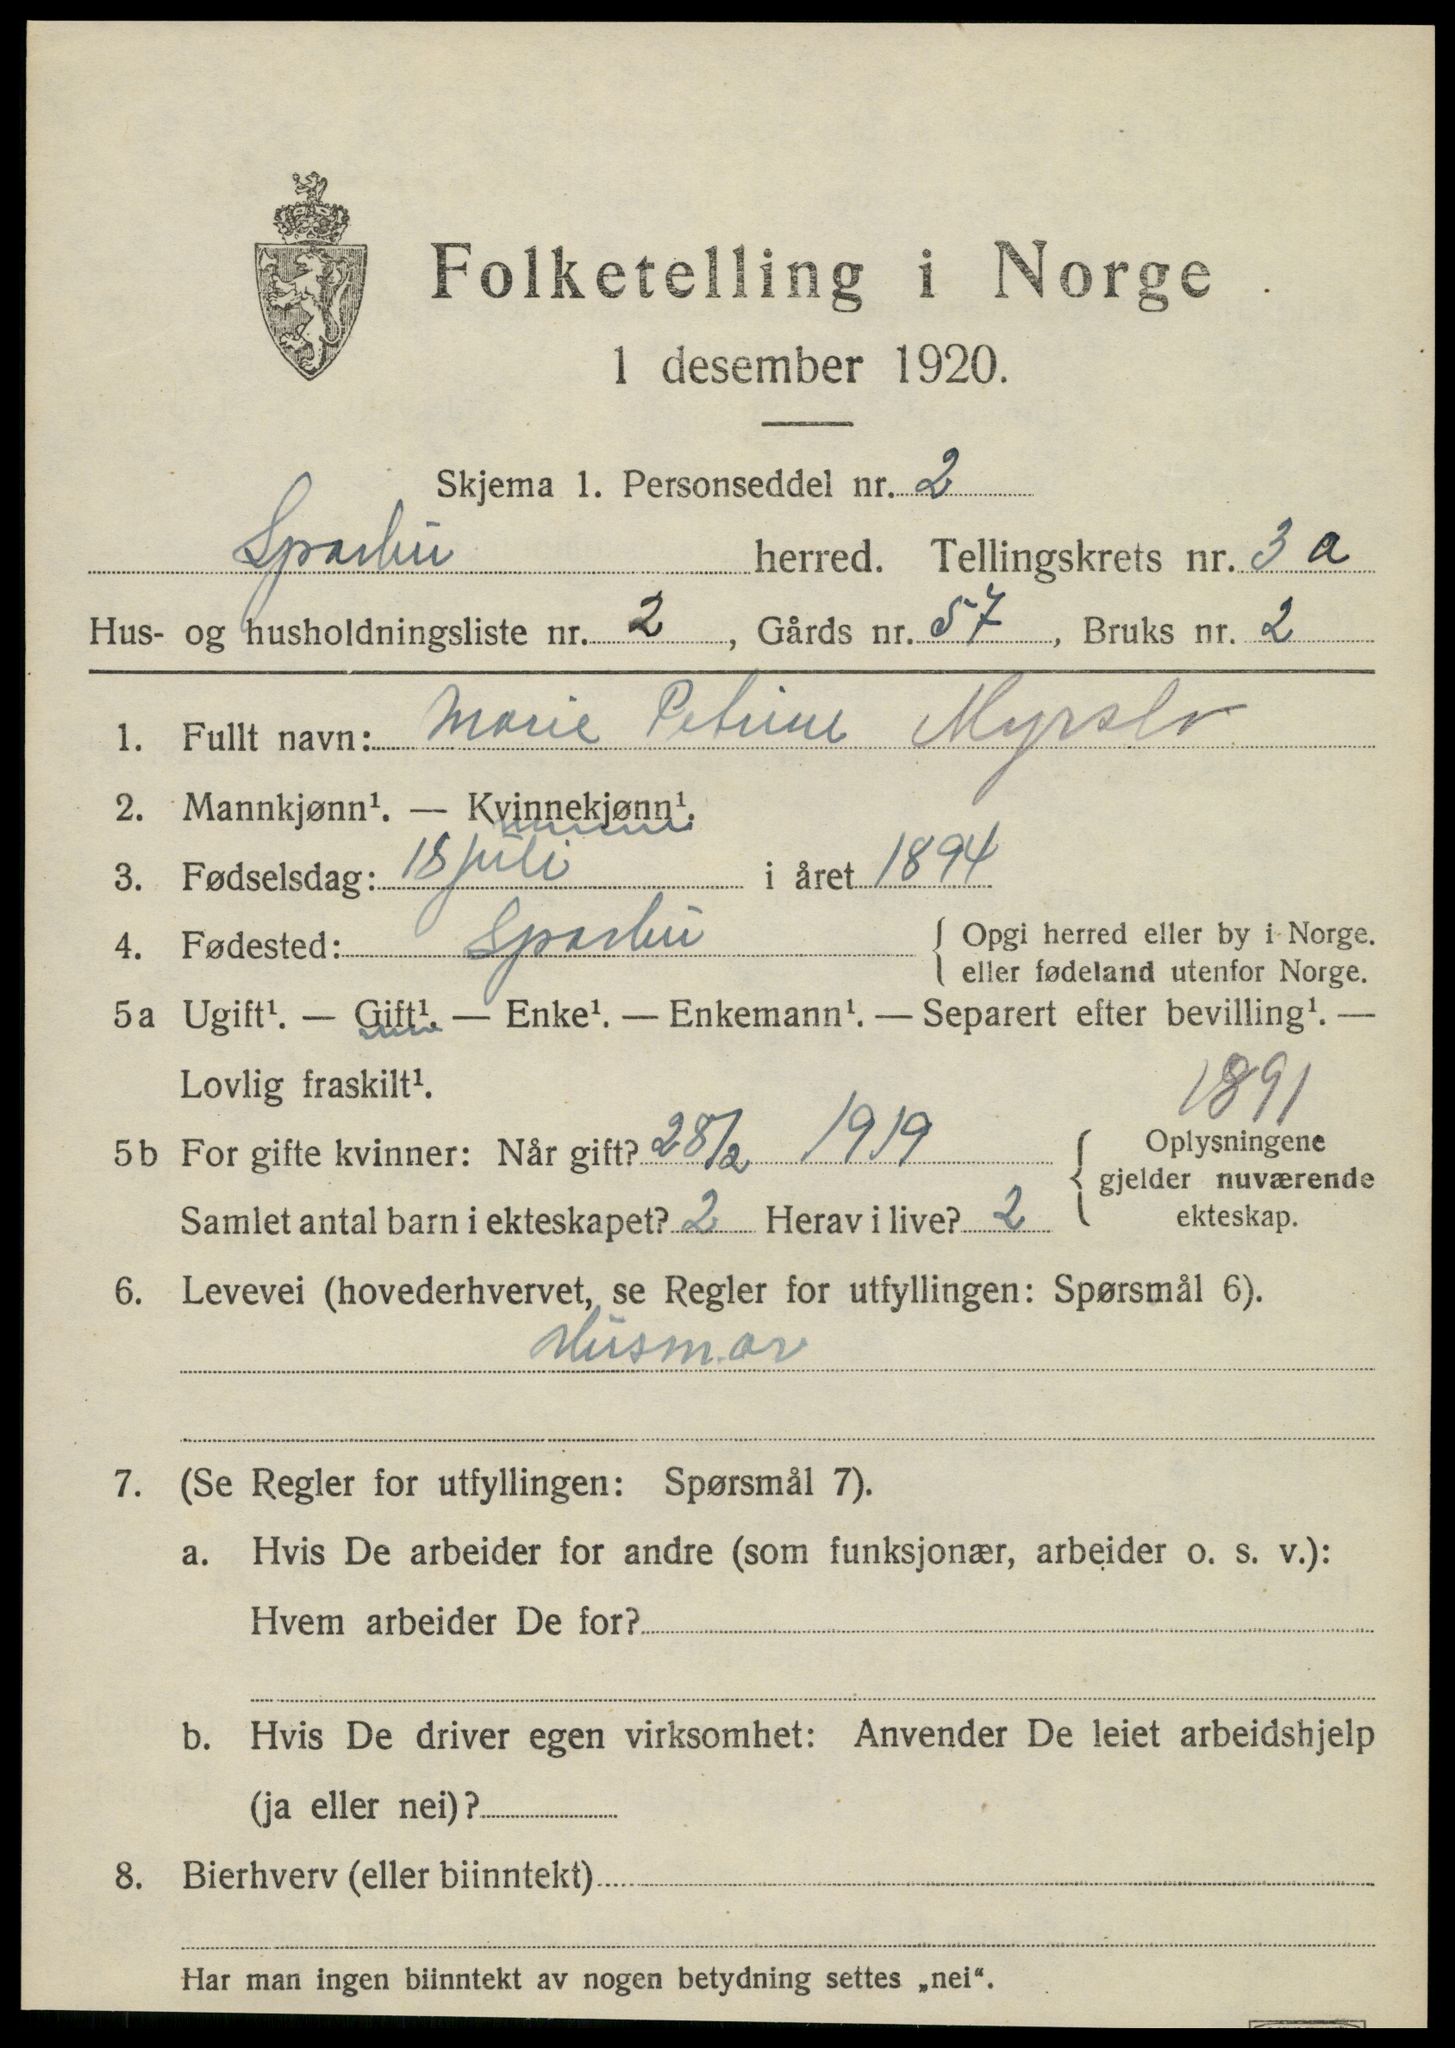 Folketelling i Norge
1 desember 1920.
Skjema 1. Personseddel nr. 2
Sparbu herred. Tellingskrets nr. 3 a
Hus- og husholdningsliste nr. 2, Gårds nr. 57, Bruks nr. 2
1. Fullt navn: Marie Petrine Myrslo
2. Mannkjønn¹. — Kvinnekjønn¹.
3. Fødselsdag: 18 juli i året 1894
4. Fødested: Sparbu { Opgi herred eller by i Norge.
eller fødeland utenfor Norge.
5a Ugift¹. — Gift¹. — Enke¹. — Enkemann¹. — Separert efter bevilling¹. —
Lovlig fraskilt¹.
1891
5b For gifte kvinner: Når gift? 28/2 1919 { Oplysningene
gjelder nuværende
Samlet antal barn i ekteskapet? 2 Herav i live? 2 ekteskap.
6. Levevei (hovederhvervet, se Regler for utfyllingen: Spørsmål 6).
Husmor
7. (Se Regler for utfyllingen: Spørsmål 7).
a. Hvis De arbeider for andre (som funksjonær, arbeider o. s. v.):
Hvem arbeider De for?
b. Hvis De driver egen virksomhet: Anvender De leiet arbeidshjelp
(ja eller nei)?
8. Bierhverv (eller biinntekt)
Har man ingen biinntekt av nogen betydning settes „nei“.